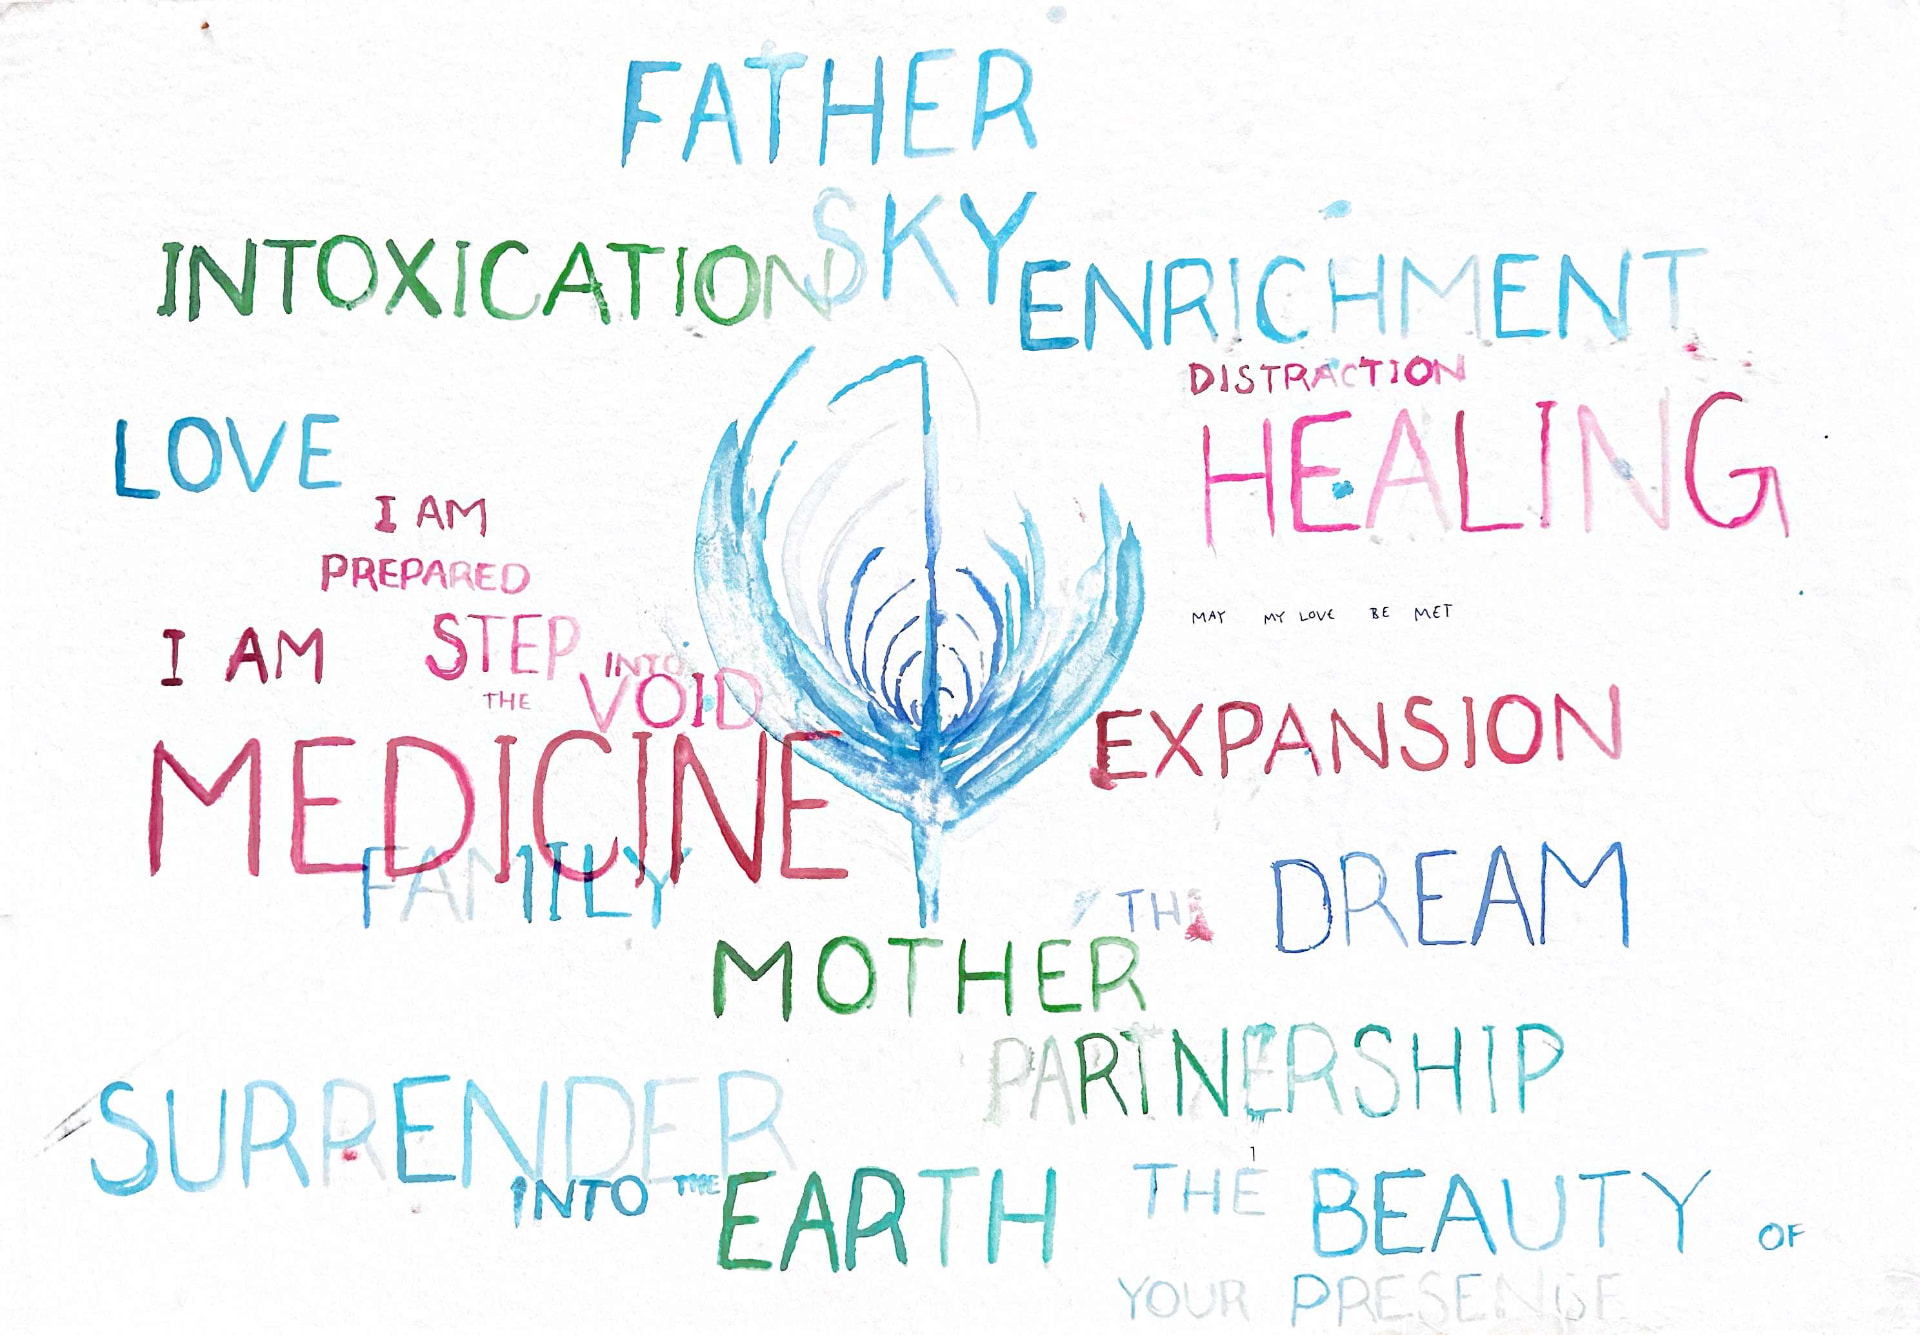 FATHER
SKY
INTOXICATION
ENRICHMENT
DISTRACTION
HEALING
LOVE
I AM
PREPARED
STEP
INTO
THE
VOID
MAY MY LOVE BE MET
I AM
MEDICINE
EXPANSION
FAMILY
THE DREAM
MOTHER
PARTNERSHIP
SURRENDER
INTO THE
EARTH
THE BEAUTY OF
YOUR PRESENCE